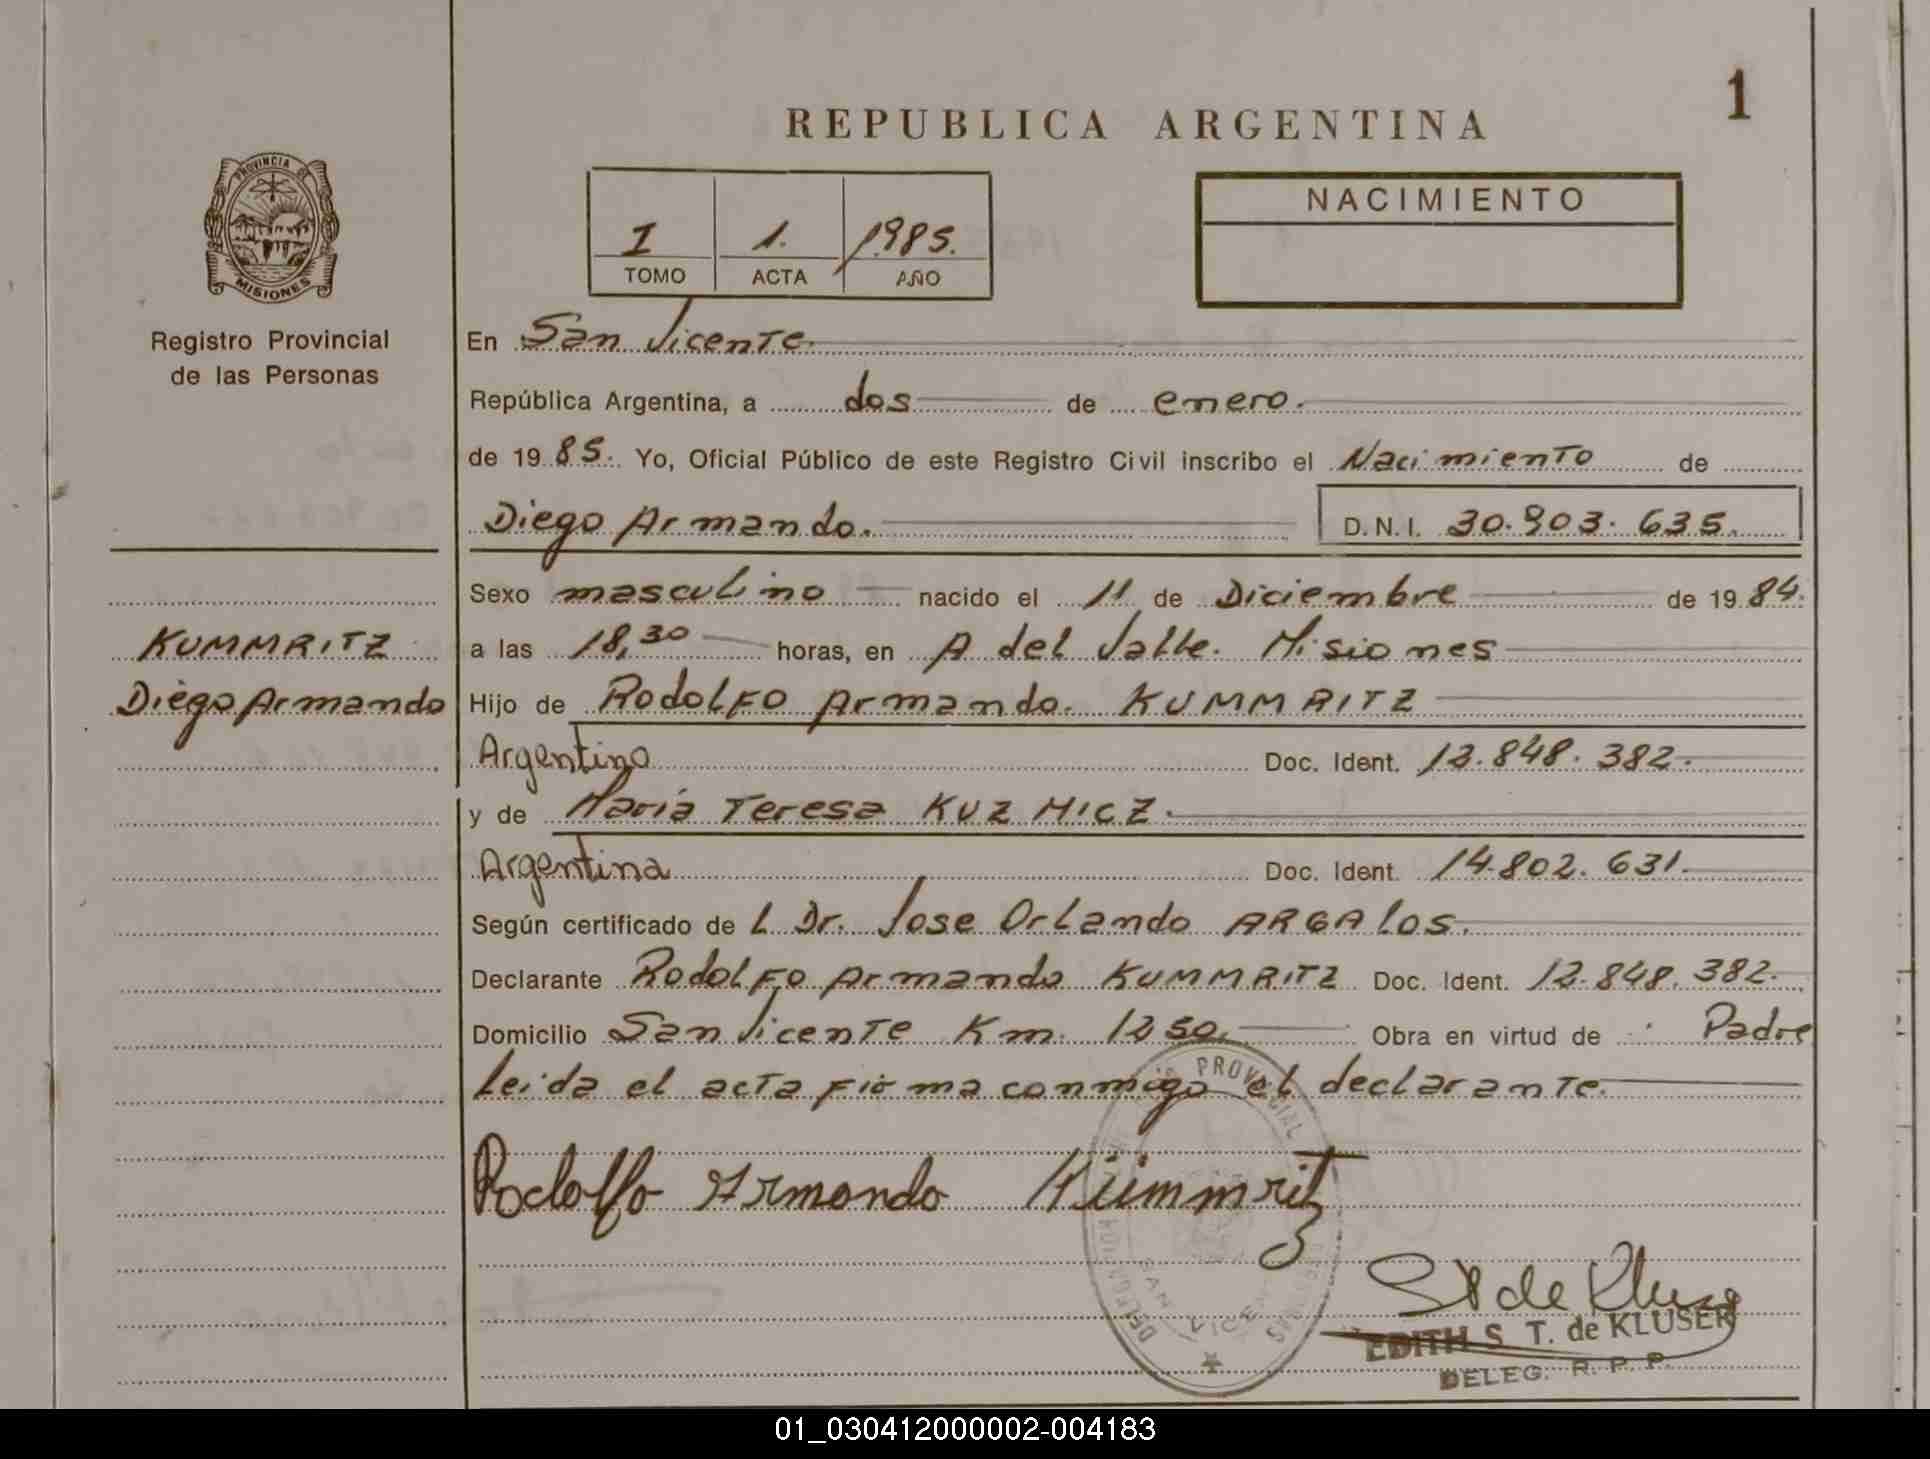 1
REPUBLICA ARGENTINA
PROVINCIA DE
MISIONES
Registro Provincial
de las Personas
I 1. 1985.
TOMO ACTA AÑO
NACIMIENTO
En San Vicente.
República Argentina, a dos de enero.
de 1985. Yo, Oficial Público de este Registro Civil inscribo el Nacimiento de
Diego Armando. D.N.I. 30.903.635.
Sexo masculino nacido el 11 de Diciembre de 1984.
KUMMRITZ
Diego Armando
a las 18,30 horas, en A del Valle. Misiones
Hijo de Rodolfo Armando. KUMMRITZ
Argentino Doc. Ident. 12.848.382.
y de María Teresa KUZMICZ.
Argentina Doc. Ident. 14.802.631.
Según certificado de L Dr. Jose Orlando ARGALOS.
Declarante Rodolfo Armando KUMMRITZ Doc. Ident. 12.848.382.
Domicilio San Vicente Km. 1250. Obra en virtud de Padre
Leida el acta firma conmigo el declarante.
Rodolfo Armando Kümmritz
PROVINCIAL
SAN VICENTE
EDITH S. T. de KLUSER
DELEG. R. P. P.
01_030412000002-004183